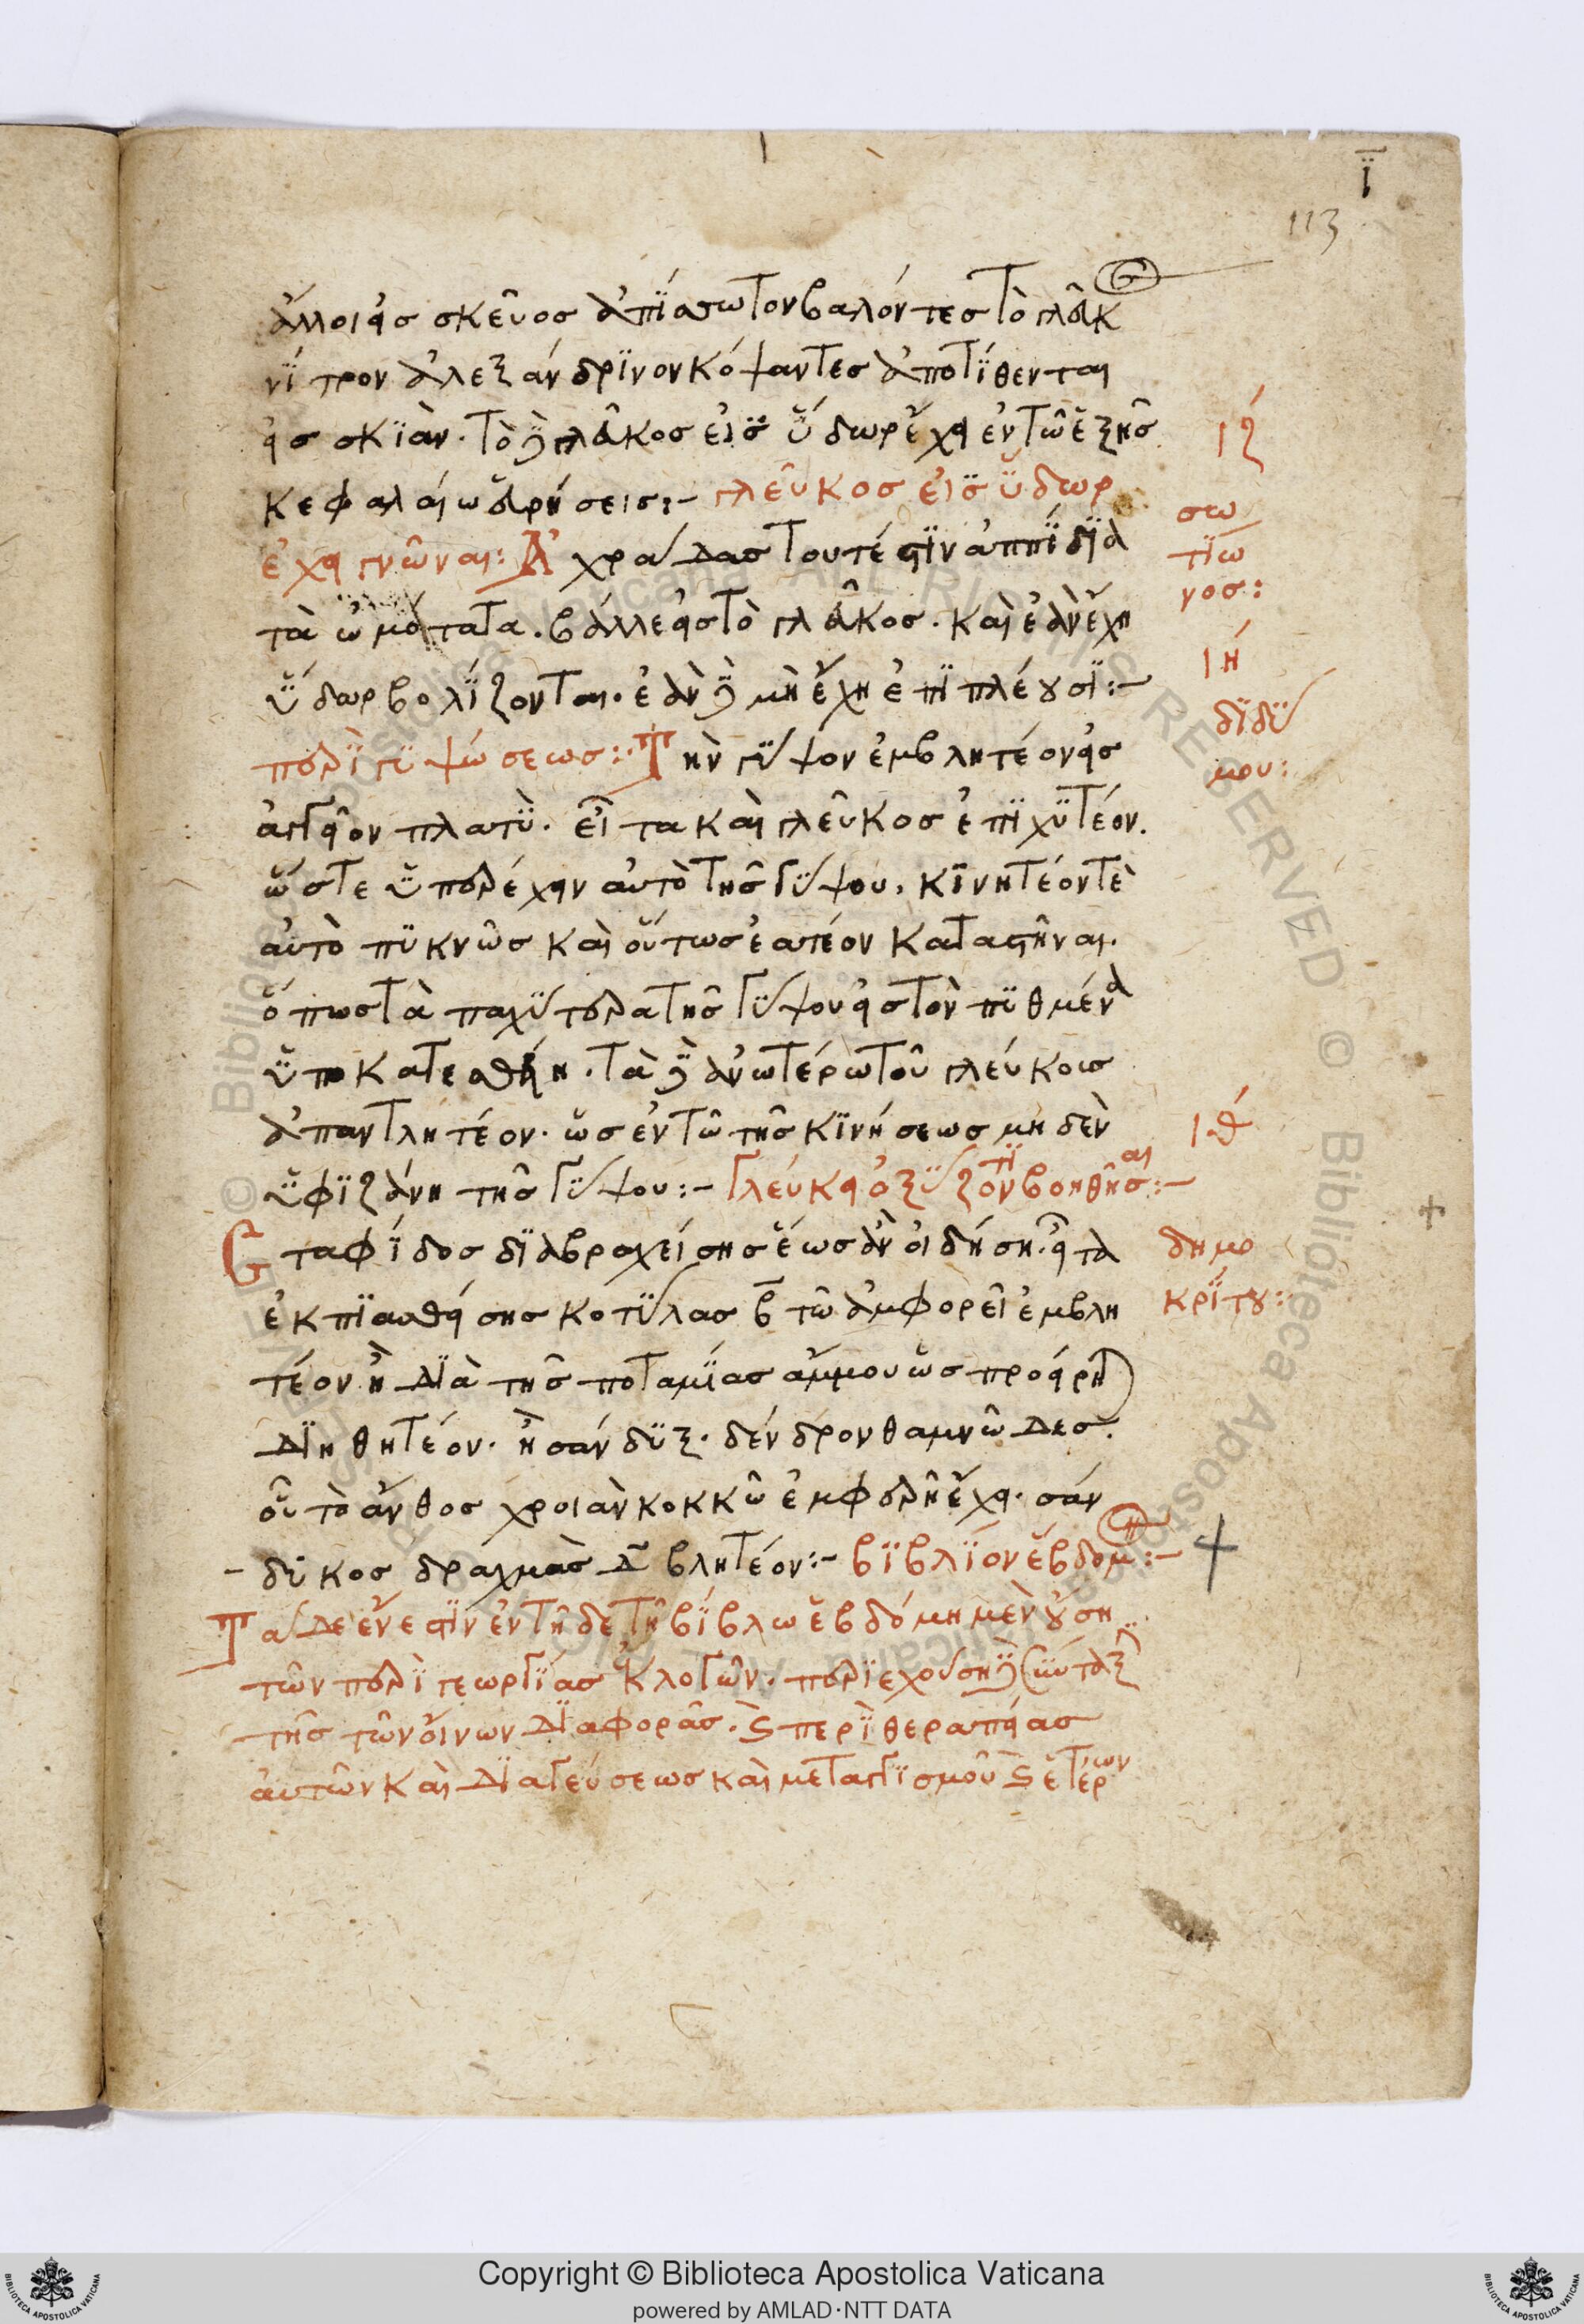 ϊ
113
ἄλλοι εἰς σκεῦος ἀπίσσωτον βαλόντες τὸ γλεῦκος
νίτρον ἀλεξάνδρϊνον κόψαντες ἀποτίθενται
εἰς σκϊάν. τὸ δὲ γλεῦκος εἰς ὕδωρ ἔχει ἐν τῶ ἑξῆς
κεφαλαίω εὑρήσεις:- γλεῦκος εἰς ὕδωρ
ἔχει γνῶναι: Ἀχράδας τουτέστιν ἀππίδϊα
τὰ ὠμότατα. βάλλε εἰς τὸ γλεῦκος. καὶ ἐὰν ἔχη
ὕδωρ βολίζονται. ἐὰν δὲ μὴ ἔχη ἐπιπλέουσι:-
περὶ γυψώσεως:· Τὴν γύψον ἐμβλητέον εἰς
ἀγγεῖον πλατὺ. εἶτα καὶ γλεῦκος ἐπιχυτέον.
ὥστε ὑπερέχειν αὐτὸ τῆς γύψου. κινητέον τὲ
αὐτὸ πυκνῶς καὶ οὕτως ἐατέον καταστῆναι.
ὅπως τὰ παχύτερα τῆς γύψου εἰς τὸν πυθμένα
ὑποκατενεχθείη. τὰ δὲ ἀνωτέρω τοῦ γλεύκους
ἀπαντλητέον. ὡς ἐν τῶ τῆς κινήσεως μηδὲν
ὑφιζάνη τῆς γύψου:- Γλεύκει ὀξύζοντι βοηθῆσαι:-
Σταφίδος διαβραχείσης ἕως ἂν οἰδήση. εἶτα
ἐκπιασθείσης κοτύλας β τῶ ἀμφορεῖ ἐμβλη
τέον ἢ διὰ τῆς ποταμίας ἄμμου ὡς προείρηται
διηθητέον. ἢ σάνδυξ. δένδρον θαμνῶδες.
οὗ τὸ ἄνθος χροιὰν κοκκῶ ἐμφερῆ ἔχει. σάν
- δυκος δραχμὰς δ βλητέον:- βιβλίον ἕβδομον:-
Τάδε ἔνεστιν ἐν τῆδε τῆ βίβλω ἑβδόμη μὲν οὔση
τῶν περὶ γεωργίας ἐκλογῶν. περιεχούση δὲ σύνταξιν
τῆς τῶν οἴνων διαφορᾶς. καὶ περὶ θεραπείας
αὐτῶν καὶ διαγεύσεως καὶ μεταγγισμοῦ καὶ ἑτέρων
ιζ
σω
τίω
νος:
ιη
διδύ
μου:
ιθ
δημο
κρίτου:
Copyright © Biblioteca Apostolica Vaticana
powered by AMLAD·NTT DATA